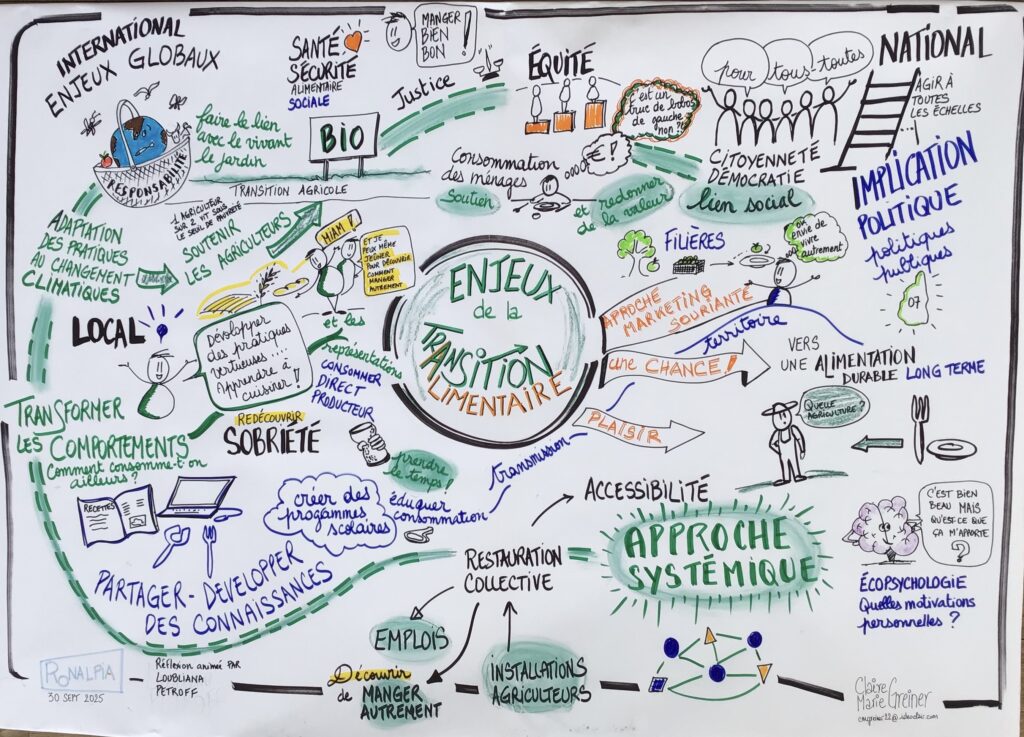 INTERNATIONAL
ENJEUX GLOBAUX
SANTÉ
SÉCURITÉ
ALIMENTAIRE
SOCIALE
MANGER
BIEN
BON !
Justice
ÉQUITÉ
C'est un
truc de bobos
de gauche
non ?!
pour tous-toutes
NATIONAL
AGIR À
TOUTES
LES ÉCHELLES
RESPONSABILITÉ
faire le lien
avec le vivant
le jardin
BIO
TRANSITION AGRICOLE
Consommation
des ménages
Soutien
€!
et redonner
de la valeur
CITOYENNETÉ
DÉMOCRATIE
lien social
IMPLICATION
POLITIQUE
politiques
publiques
07
ADAPTATION
DES PRATIQUES
AU CHANGEMENT
CLIMATIQUES
1 AGRICULTEUR
SUR 2 VIT SOUS
LE SEUIL DE PAUVRETÉ
SOUTENIR
LES AGRICULTEURS
MIAM !
ET JE
PEUX MÊME
JEÛNER
POUR DÉCOUVRIR
COMMENT
MANGER
AUTREMENT
ENJEUX
de la
TRANSITION
ALIMENTAIRE
FILIÈRES
envie de
vivre
autrement
APPROCHE
MARKETING
SOURIANTE
territoire
une CHANCE !
VERS
UNE ALIMENTATION
DURABLE LONG TERME
PLAISIR
transmission
QUELLE
AGRICULTURE ?
LOCAL
Développer
des pratiques
vertueuses...
Apprendre à
cuisiner !
et les
représentations
CONSOMMER
DIRECT
PRODUCTEUR
REDÉCOUVRIR
SOBRIÉTÉ
TRANSFORMER
LES COMPORTEMENTS
Comment consomme-t'on
ailleurs ?
RECETTES
créer des
progammes
scolaires
prendre
le temps !
éduquer
consommation
PARTAGER - DEVELOPPER
DES CONNAISSANCES
ACCESSIBILITÉ
RESTAURATION
COLLECTIVE
EMPLOIS
Découvrir
de MANGER
AUTREMENT
INSTALLATIONS
AGRICULTEURS
APPROCHE
SYSTÉMIQUE
C'EST BIEN
BEAU MAIS
QU'EST-CE QUE
ÇA M'APPORTE
?
ÉCOPSYCHOLOGIE
Quelles motivations
personnelles ?
RONALPIA
30 SEPT 2025
Réflexion animée PAR
LOUBLIANA
PETROFF
Claire
Marie Greiner